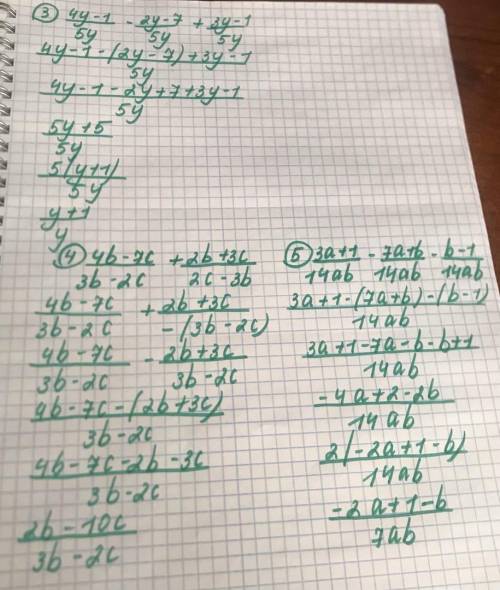 ③ (4y-1)/5y - (2y-7)/5y + (3y-1)/5y
(4y-1-(2y-7)+3y-1)/5y
(4y-1-2y+7+3y-1)/5y
(5y+5)/5y
5(y+1)/5y
(y+1)/y
④ (4b-7c)/(3b-2c) + (2b+3c)/(2c-3b)
(4b-7c)/(3b-2c) + (2b+3c)/(-(3b-2c))
(4b-7c)/(3b-2c) - (2b+3c)/(3b-2c)
(4b-7c-(2b+3c))/(3b-2c)
(4b-7c-2b-3c)/(3b-2c)
(2b-10c)/(3b-2c)
⑤ (3a+1)/14ab - (7a+b)/14ab - (b-1)/14ab
(3a+1-(7a+b)-(b-1))/14ab
(3a+1-7a-b-b+1)/14ab
(-4a+2-2b)/14ab
2(-2a+1-b)/14ab
(-2a+1-b)/7ab